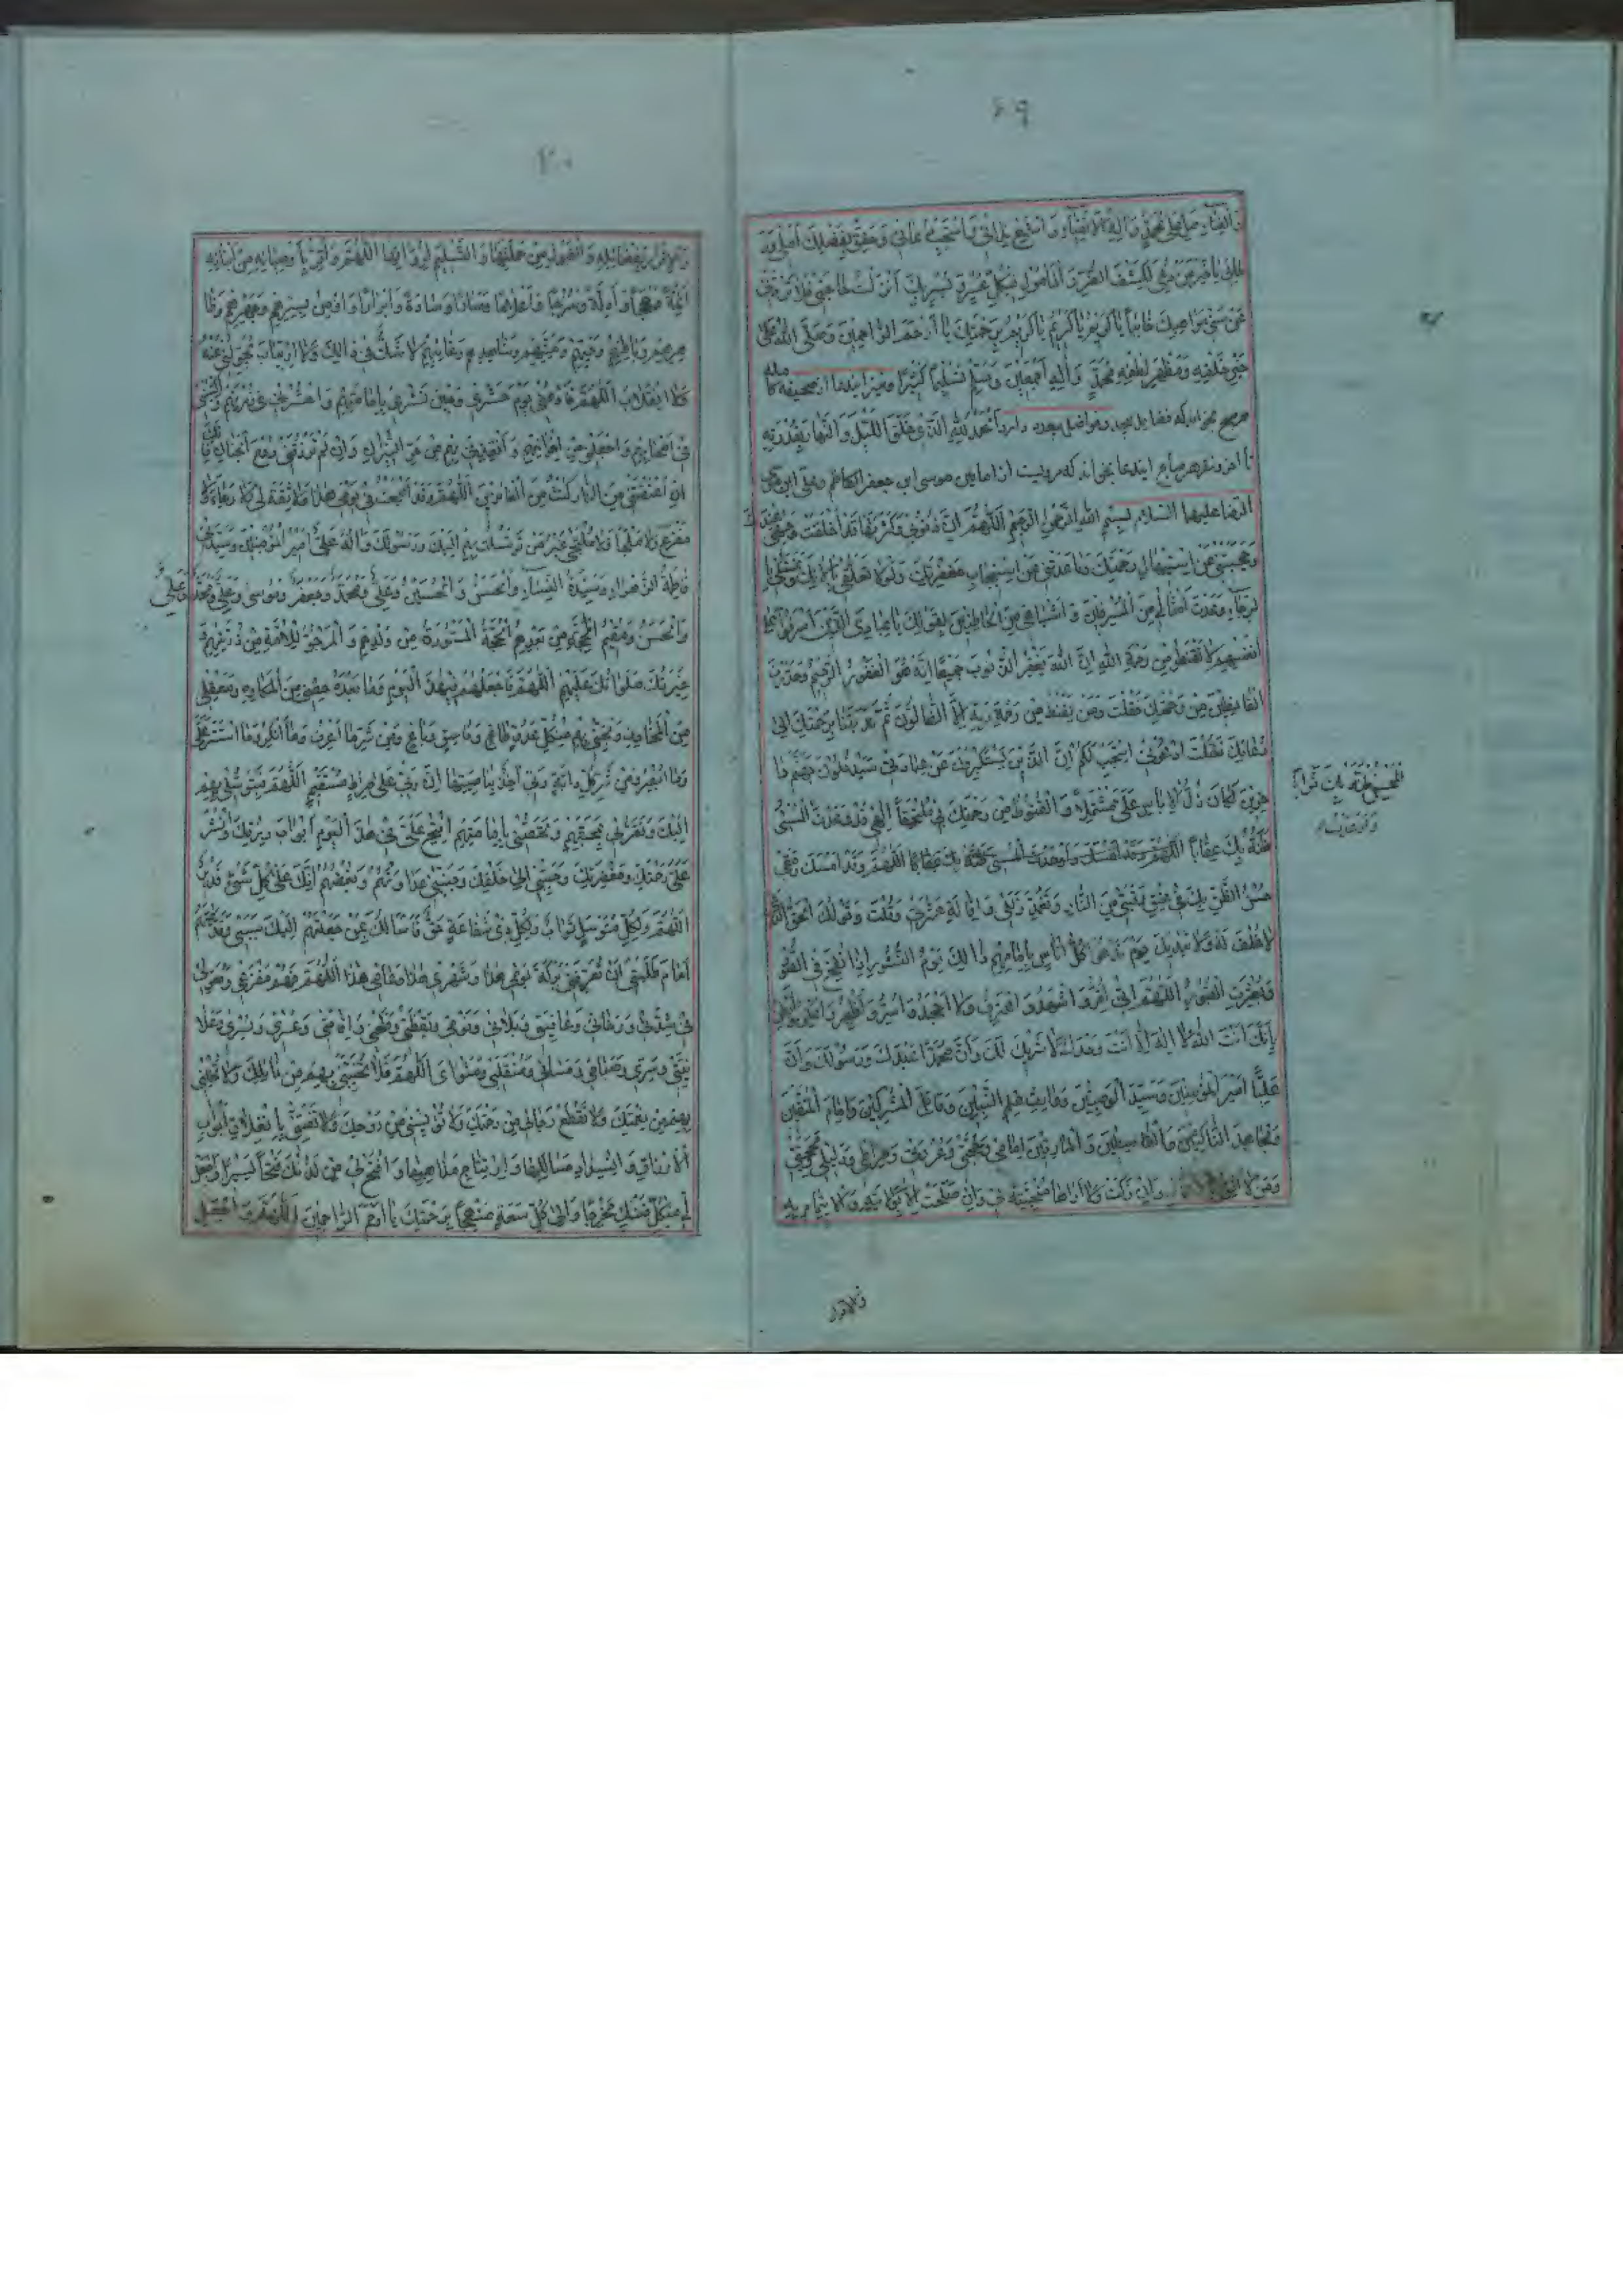 ۶۹
وَالفَنَاءِ صَلِّ عَلٰی مُحَمَّدٍ وَاٰلِهِ الْاَتْقِیَاءِ وَاسْتَمِعْ نِدَائِی وَاسْتَجِبْ دُعَائِی وَحَقِّقْ بِفَضْلِكَ اَمَلِی وَرَ
جَائِی یَا خَیْرَ مَنْ دُعِیَ لِكَشْفِ الضُّرِّ وَالْمَاْمُولِ لِكُلِّ عُسْرٍ وَیُسْرٍ بِكَ اَنْزَلْتُ حَاجَتِی فَلَا تَرُدَّنِی
مِنْ سَنِیِّ مَوَاهِبِكَ خَائِبًا یَا كَرِیمُ یَا كَرِیمُ یَا كَرِیمُ بِرَحْمَتِكَ یَا اَرْحَمَ الرَّاحِمِینَ وَصَلَّی اللهُ عَلٰی
خَیْرِ خَلْقِهِ وَمَظْهَرِ لُطْفِهِ مُحَمَّدٍ وَاٰلِهِ اَجْمَعِینَ وَسَلَّمَ تَسْلِیمًا كَثِیرًا ونیز ایندعا از صحیفه کامله
هر صبح بخواند که فضایل بیحد وفواضل بیعدد دارد اَلْحَمْدُ لِلّٰهِ الَّذِی خَلَقَ اللَّیْلَ وَالنَّهَارَ بِقُدْرَتِهِ
تا اخر ونیز هر صباح ایندعا بخواند که مرویست از امامین موسی ابن جعفر الکاظم وعلی ابن موسی
الرضا علیهما السلام بِسْمِ اللهِ الرَّحْمٰنِ الرَّحِیمِ اَللّٰهُمَّ اِنَّ ذُنُوبِی وَكَثْرَتَهَا قَدْ اَخْلَقَتْ وَجْهِی عِنْدَكَ
وَحَجَبَتْنِی عَنِ اسْتِیهَالِ رَحْمَتِكَ وَبَاعَدَتْنِی عَنِ اسْتِیجَابِ مَغْفِرَتِكَ وَلَوْلَا تَعَلُّقِی بِاٰلَائِكَ وَتَمَسُّكِی بِا
لرَّجَاءِ وَعَدْتَ اَمْثَالِی مِنَ الْمُسْرِفِینَ وَاَشْبَاهِی مِنَ الْخَاطِئِینَ بِقَوْلِكَ یَا عِبَادِیَ الَّذِینَ اَسْرَفُوا عَلٰی
اَنْفُسِهِمْ لَا تَقْنَطُوا مِنْ رَحْمَةِ اللهِ اِنَّ اللهَ یَغْفِرُ الذُّنُوبَ جَمِیعًا اِنَّهُ هُوَ الْغَفُورُ الرَّحِیمُ وَحَذَّرْتَ
الْقَانِطِینَ مِنْ رَحْمَتِكَ فَقُلْتَ وَمَنْ یَقْنَطُ مِنْ رَحْمَةِ رَبِّهِ اِلَّا الضَّالُّونَ ثُمَّ نَدَبْتَنَا بِرَحْمَتِكَ اِلٰی
دُعَائِكَ فَقُلْتَ ادْعُونِی اَسْتَجِبْ لَكُمْ اِنَّ الَّذِینَ یَسْتَكْبِرُونَ عَنْ عِبَادَتِی سَیَدْخُلُونَ جَهَنَّمَ دَا
خِرِینَ لَكَانَ ذُلُّ الْاِیَاسِ عَلَیَّ مُشْتَمِلًا وَالْقُنُوطُ مِنْ رَحْمَتِكَ بِی مُلْتَحِفًا اِلٰهِی قَدْ وَعَدْتَ
لِمُحْسِنِ ظَنِّهِ بِكَ ثَوَابًا
ظَنَّهُ بِكَ عِقَابًا اَللّٰهُمَّ وَقَدْ اَمْسَكَ رَمَقِی
حُسْنُ الظَّنِّ بِكَ فِی عِتْقِ رَقَبَتِی مِنَ النَّارِ وَتَغَمُّدِ زَلَلِی وَاِقَالَةِ عَثْرَتِی وَقُلْتَ وَقَوْلُكَ الْحَقُّ الَّذِی
لَا خُلْفَ لَهُ وَلَا تَبْدِیلَ یَوْمَ نَدْعُو كُلَّ اُنَاسٍ بِاِمَامِهِمْ ذٰلِكَ یَوْمُ النُّشُورِ اِذَا نُفِخَ فِی الصُّورِ
وَبُعْثِرَتِ الْقُبُورُ اَللّٰهُمَّ اِنِّی اُقِرُّ وَاَشْهَدُ وَاَعْتَرِفُ وَلَا اَجْحَدُ وَاُسِرُّ وَاُظْهِرُ وَاُعْلِنُ وَاُبْطِنُ
بِاَنَّكَ اَنْتَ اللهُ لَا اِلٰهَ اِلَّا اَنْتَ وَحْدَكَ لَا شَرِیكَ لَكَ وَاَنَّ مُحَمَّدًا عَبْدُكَ وَرَسُولُكَ وَاَنَّ
عَلِیًّا اَمِیرُ الْمُؤْمِنِینَ وَسَیِّدُ الْوَصِیِّینَ وَوَارِثُ عِلْمِ النَّبِیِّینَ وَقَاتِلُ الْمُشْرِكِینَ وَاِمَامُ الْمُتَّقِینَ
وَمُجَاهِدُ النَّاكِثِینَ وَالْقَاسِطِینَ وَالْمَارِقِینَ اِمَامِی وَحُجَّتِی وَعُرْوَتِی وَصِرَاطِی وَدَلِیلِی وَمَحَجَّتِی
وَمَنْ لَا اَثِقُ وَاِنْ زَكَتْ وَلَا اَرَاهَا مُنْجِیَةً لِی وَاِنْ صَلَحَتْ اِلَّا بِوِلَایَتِهِ وَالْاِیتِمَامِ بِهِ
والاقرار
۷۰
وَالْاِقْرَارِ بِفَضَائِلِهِ وَالْقَبُولِ مِنْ حَمَلَتِهَا وَالتَّسْلِیمِ لِرُوَاتِهَا اَللّٰهُمَّ وَاُقِرُّ بِاَوْصِیَائِهِ مِنْ اَبْنَائِهِ
اَئِمَّةً وَحُجَجًا وَاَدِلَّةً وَسُرُجًا وَاَعْلَامًا وَمَنَارًا وَسَادَةً وَاَبْرَارًا وَاُومِنُ بِسِرِّهِمْ وَجَهْرِهِمْ وَظَا
هِرِهِمْ وَبَاطِنِهِمْ وَحَیِّهِمْ وَمَیِّتِهِمْ وَشَاهِدِهِمْ وَغَائِبِهِمْ لَا شَكَّ فِی ذٰلِكَ وَلَا ارْتِیَابَ تَحَوُّلَ لِی عَنْهُ
وَلَا انْقِلَابَ اَللّٰهُمَّ فَادْعُنِی یَوْمَ حَشْرِی وَحِینَ نَشْرِی بِاِمَامَتِهِمْ وَاحْشُرْنِی فِی زُمْرَتِهِمْ وَاكْتُبْنِی
فِی اَصْحَابِهِمْ وَاجْعَلْنِی مِنْ اِخْوَانِهِمْ وَاَنْقِذْنِی بِهِمْ مِنْ حَرِّ النِّیرَانِ وَاِنْ لَمْ تَرْزُقْنِی رَوْحَ الْجِنَانِ فَاِنَّكَ
اِنْ اَعْتَقْتَنِی مِنَ النَّارِ كُنْتُ مِنَ الْفَائِزِینَ اَللّٰهُمَّ وَقَدْ اَصْبَحْتُ فِی یَوْمِی هٰذَا وَلَا ثِقَةَ لِی وَلَا رَجَاءَ وَلَا
مَفْزَعَ وَلَا مَلْجَاَ وَلَا مُلْتَجَی غَیْرَ مَنْ تَوَسَّلْتُ بِهِمْ اِلَیْكَ وَرَسُولِكَ وَاٰلِهِ عَلِیٍّ اَمِیرِ الْمُؤْمِنِینَ وَسَیِّدَتِی
فَاطِمَةَ الزَّهْرَاءِ وَسَیِّدَةِ النِّسَاءِ وَالْحَسَنِ وَالْحُسَیْنِ وَعَلِیٍّ وَمُحَمَّدٍ وَجَعْفَرٍ وَمُوسٰی وَعَلِیٍّ وَمُحَمَّدٍ وَعَلِیٍّ
وَالْحَسَنِ وَمُقِیمِ الْحُجَّةِ مِنْ بَعْدِهِمُ الْحُجَّةِ الْمَسْتُورَةِ مِنْ وُلْدِهِمْ وَالْمَرْجُوِّ لِلْاُمَّةِ مِنْ ذُرِّیَّتِهِمْ وَ
خِیَرَتِكَ صَلَوَاتُكَ عَلَیْهِمْ اَللّٰهُمَّ فَاجْعَلْهُمْ فِی هٰذَا الْیَوْمِ وَمَا بَعْدَهُ حِصْنِی مِنَ الْمَكَارِهِ وَمَعْقِلِی
مِنَ الْمَخَاوِفِ وَنَجِّنِی بِهِمْ مِنْ كُلِّ عَدُوٍّ طَاغٍ وَفَاسِقٍ وَبَاغٍ وَمِنْ شَرِّ مَا اَعْرِفُ وَمَا اُنْكِرُ وَمَا اسْتَتَرَ عَلَیَّ
وَمَا اُبْصِرُ وَمِنْ شَرِّ كُلِّ دَابَّةٍ رَبِّی اٰخِذٌ بِنَاصِیَتِهَا اِنَّ رَبِّی عَلٰی صِرَاطٍ مُسْتَقِیمٍ اَللّٰهُمَّ فَبِتَوَسُّلِی بِهِمْ
اِلَیْكَ وَتَقَرُّبِی بِمَحَبَّتِهِمْ وَتَحَصُّنِی بِاِمَامَتِهِمْ اِفْتَحْ عَلَیَّ فِی هٰذَا الْیَوْمِ اَبْوَابَ رِزْقِكَ وَانْشُرْ
عَلَیَّ رَحْمَتَكَ وَمَغْفِرَتَكَ وَحَبِّبْنِی اِلٰی خَلْقِكَ وَجَنِّبْنِی عَدَاوَتَهُمْ وَبُغْضَهُمْ اِنَّكَ عَلٰی كُلِّ شَیْءٍ قَدِیرٌ
اَللّٰهُمَّ وَلِكُلِّ مُتَوَسِّلٍ ثَوَابٌ وَلِكُلِّ ذِی شَفَاعَةٍ حَقٌّ فَاَسْاَلُكَ بِمَنْ جَعَلْتَهُمْ اِلَیْكَ سَبَبِی وَقَدَّمْتُهُمْ
اَمَامَ طَلِبَتِی اَنْ تُعَرِّفَنِی بَرَكَةَ یَوْمِی هٰذَا وَشَهْرِی هٰذَا وَعَامِی هٰذَا اَللّٰهُمَّ فَهُمْ مَفْزَعِی وَمَعُونَتِی
فِی شِدَّتِی وَرَخَائِی وَعَافِیَتِی وَبَلَائِی وَنَوْمِی وَیَقْظَتِی وَظَعْنِی وَاِقَامَتِی وَعُسْرِی وَیُسْرِی وَعَلَا
نِیَتِی وَسِرِّی وَصَبَاحِی وَمَسَائِی وَمُنْقَلَبِی وَمَثْوَایَ اَللّٰهُمَّ فَلَا تُخَیِّبْنِی بِهِمْ مِنْ نَائِلِكَ وَلَا تُخْلِنِی
بِهِمْ مِنْ نِعْمَتِكَ وَلَا تَقْطَعْ رَجَائِی مِنْ رَحْمَتِكَ وَلَا تُؤْیِسْنِی مِنْ رَوْحِكَ وَلَا تَفْتِنِّی بِانْغِلَاقِ اَبْوَابِ
الْاَرْزَاقِ وَانْسِدَادِ مَسَالِكِهَا وَارْتِتَاجِ مَذَاهِبِهَا وَافْتَحْ لِی مِنْ لَدُنْكَ فَتْحًا یَسِیرًا وَاجْعَلْ
لِی مِنْ كُلِّ ضَنْكٍ مَخْرَجًا وَاِلٰی كُلِّ سَعَةٍ مَنْهَجًا بِرَحْمَتِكَ یَا اَرْحَمَ الرَّاحِمِینَ اَللّٰهُمَّ وَاجْعَلِ